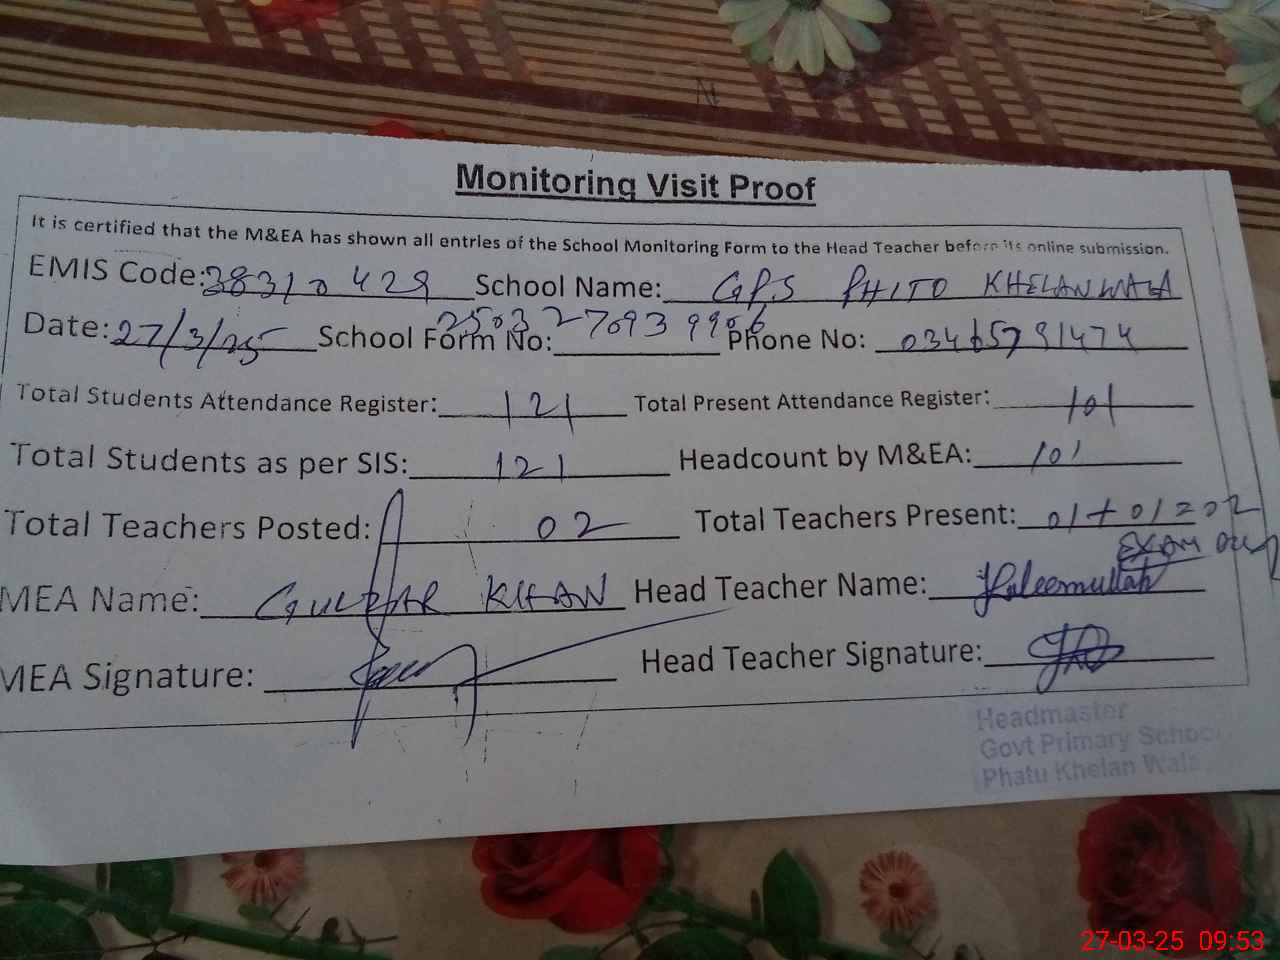 Monitoring Visit Proof
It is certified that the M&EA has shown all entries of the School Monitoring Form to the Head Teacher before its online submission.
EMIS Code: 38310429 School Name: GPS PHITO KHELANWALA
Date: 27/3/25 School Form No: 2503270939906 Phone No: 03465791474
Total Students Attendance Register: 121 Total Present Attendance Register: 101
Total Students as per SIS: 121 Headcount by M&EA: 101
Total Teachers Posted: 02 Total Teachers Present: 01+01=02
EXAM Duty
MEA Name: GULZAR KHAN Head Teacher Name: Haleemullah
MEA Signature: Head Teacher Signature:
Headmaster
Govt Primary School
Phatu Khelan Wala
27-03-25 09:53